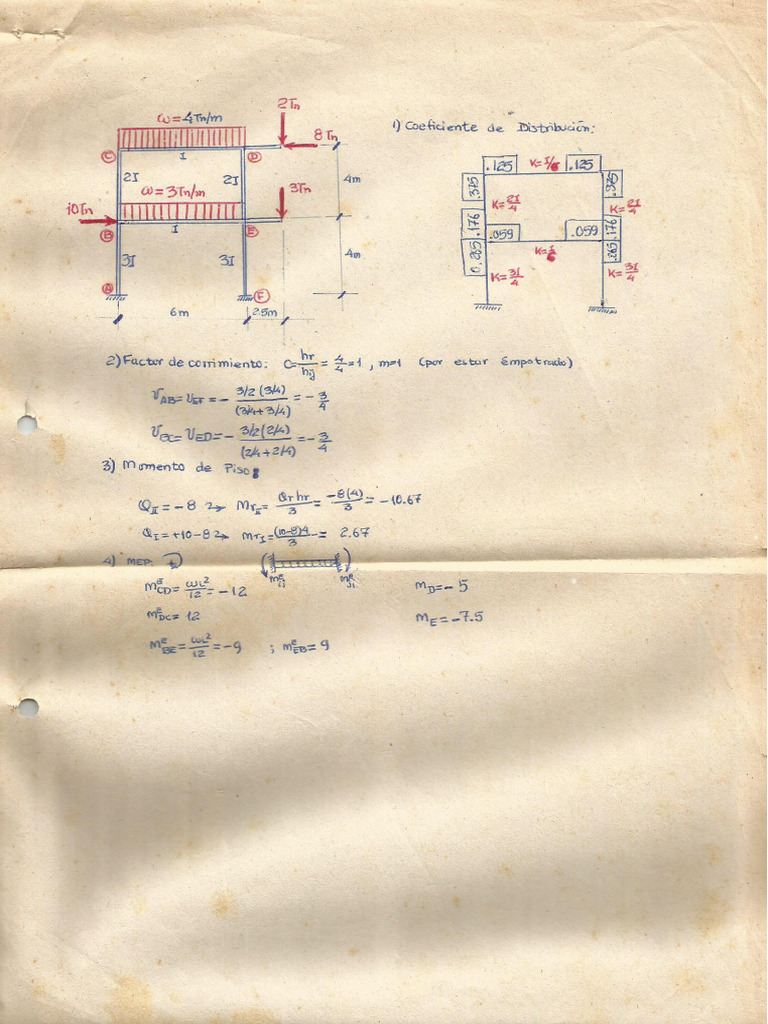 2Tn
ω=4Tn/m
8Tn
C
I
D
2I
2I
4m
ω=3Tn/m
3Tn
10Tn
B
I
E
3I
3I
4m
A
F
6m
2.5m
1) Coeficiente de Distribución:
.125
K=I/6
.125
.375
.375
K=2I/4
K=2I/4
.176
.059
.059
.176
K=I/6
0.265
.265
K=3I/4
K=3I/4
2) Factor de corrimiento: C=hr/hij=4/4=1, m=1 (por estar Empotrado)
VAB=VEF=-3/2(3/4)/(3/4+3/4)=-3/4
VBC=VED=-3/2(2/4)/(2/4+2/4)=-3/4
3) Momento de Piso:
QII=-8 → MrII=Qrhr/3=-8(4)/3=-10.67
QI=+10-8 → MrI=(10-8)4/3=2.67
4) MEP:
mEij
mEji
mECD=ωL²/12=-12
mD=-5
mEDC=12
mE=-7.5
mEBE=ωL²/12=-9 ; mEEB=9